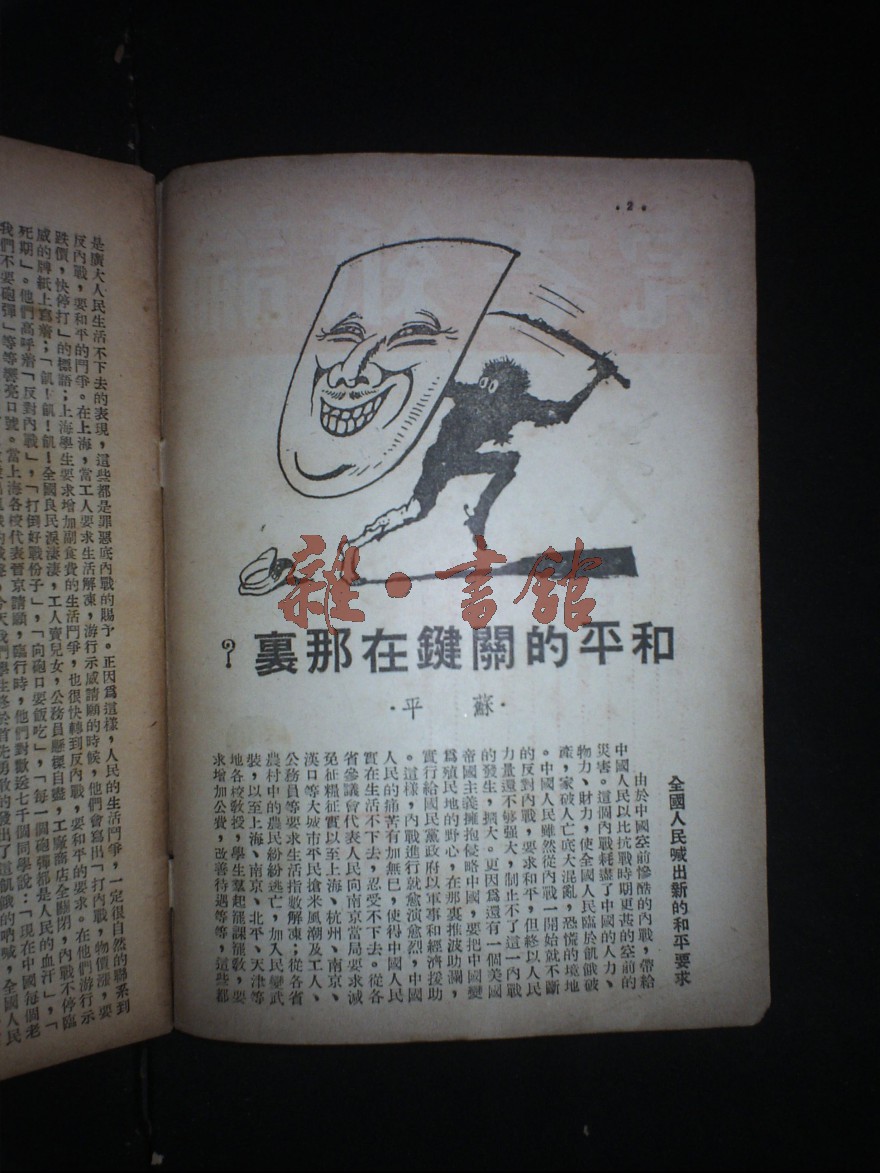 ·2·
和平的關鍵在那裏?
·蘇平·
雜·書館
全國人民喊出新的和平要求
由於中國空前慘酷的內戰,帶給
中國人民以比抗戰時期更甚的空前的
災害。這個內戰耗盡了中國的人力、
物力、財力,使全國人民臨於飢餓破
產,家破人亡底大混亂,恐慌的境地
。中國人民雖然從內戰一開始就不斷
的反對內戰,要求和平,但終以人民
力量還不够强大,制止不了這一內戰
的發生,擴大。更因爲還有一個美國
帝國主義擁抱侵略中國,要把中國變
爲殖民地的野心,在那裏推波助瀾,
實行給國民黨政府以軍事和經濟援助
。這樣,內戰進行就愈演愈烈,中國
人民的痛苦有加無已,使得中國人民
實在生活不下去,忍受不下去。從各
省參議會代表人民向南京當局要求減
免征糧征實以至上海、杭州、南京、
漢口等大城市平民搶米風潮及工人、
公務員等要求生活指數解凍;從各省
農村中的農民紛紛逃亡,加入民變武
裝,以至上海、南京、北平、天津等
地各校敎授,學生羣起罷課罷敎,要
求增加公費,改善待遇等等,這些都
是廣大人民生活不下去的表現,這些都是罪惡底內戰的賜予。正因爲這樣,人民的生活鬥爭,一定很自然的聯系到
反內戰,要和平的鬥爭。在上海,當工人要求生活解凍,游行示威請願的時候,他們會寫出「打內戰,物價漲,要
跌價,快停打」的標語;上海學生要求增加副食費的生活鬥爭,也很快轉到反內戰,要和平的要求。在他們游行示
威的牌紙上寫着:「飢!飢!飢!全國良民淚淒淒,工人賣兒女,公務員懸樑自盡,工廠商店全關閉,內戰不停臨
死期」。他們高呼着「反對內戰」,「打倒好戰份子」,「向砲口要飯吃」,「每一個砲彈都是人民的血汗」,「
我們不要砲彈」等等響亮口號。當上海各校代表晉京請願,臨行時,他們對歡送七千個同學說:「現在中國每個老
今天我們學生終於首先勇敢的發出了這飢餓的吶喊,全國人民